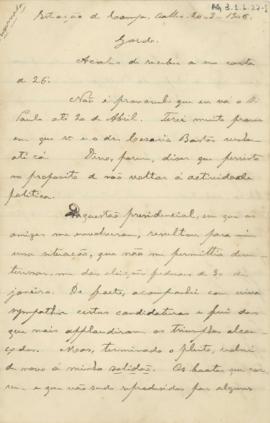 Estação de Campo Salles 20-3-1906.
Gordo.
Acabo de receber a sua carta
de 26.
Não é provavel que eu vá a S.
Paulo até 20 de Abril. Terei muito prazer
em que v. e o dr. Cesario Bastos venham
até cá. Devo, porem, dizer que persisto
no proposito de não voltar á actividade
politica.
Da questão presidencial, em que os
amigos me envolveram, resultou para mim
uma situação, que não me permittia
da eleição federal de 30 de
janeiro. De facto, acompanhei com viva
sympathia certas candidaturas e fui dos
que mais applaudiram os triumphos alcan-
çados. Mas, terminado o pleito, volvi
de novo á minha solidão. Os boatos que cor-
rem e que vão sendo reproduzidos por alguns